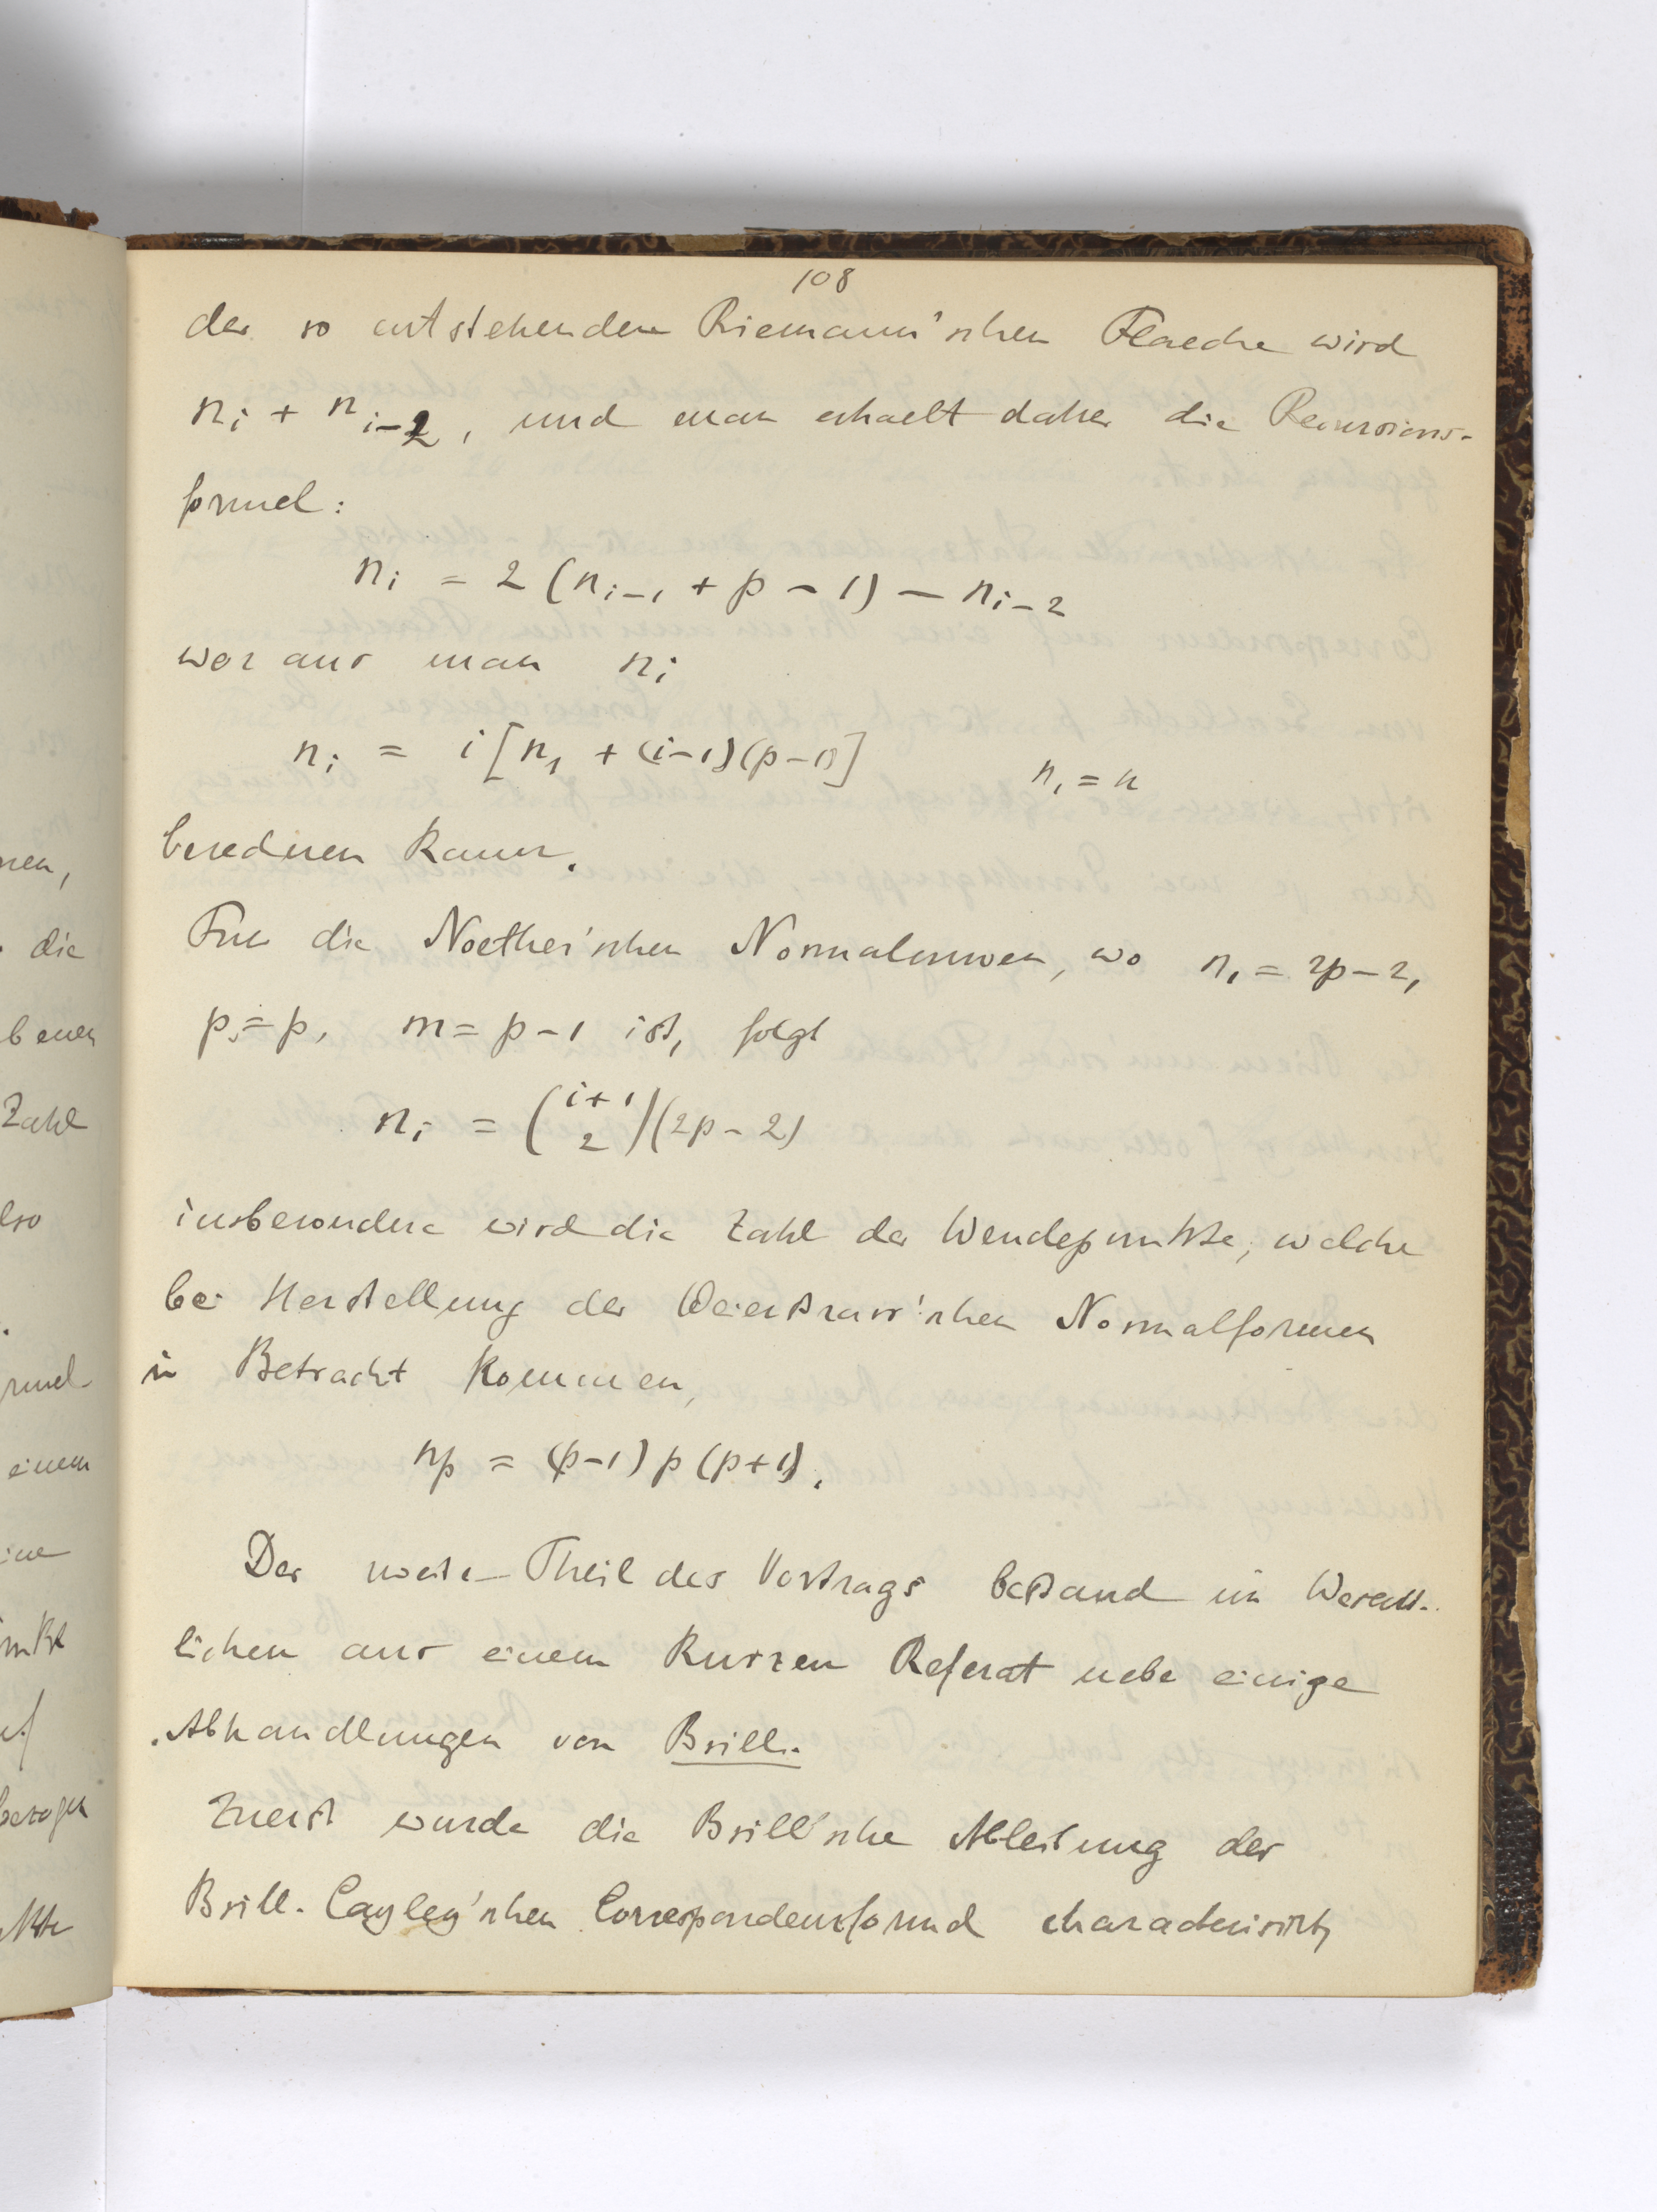 108
der so entstehenden Riemann'schen Flaeche wird
n_i + n_{i-2}, und man erhaelt daher die Recursions-
formel:
n_i = 2 (n_{i-1} + p - 1) - n_{i-2}
woraus man n_i
n_i = i [n_1 + (i-1)(p-1)] n_1 = n
berechnen kann.
Fuer die Noether'schen Normalcurven, wo n_1 = 2p-2,
p = p, m = p-1 ist, folgt
n_i = (i+1 2)(2p-2)
insbesondere wird die Zahl der Wendepunkte, welche
bei Herstellung der Weierstrass'schen Normalformen
in Betracht kommen,
n_p = (p-1) p (p+1).
Der zweite Theil des Vortrags bestand im Wesent-
lichen aus einem kurzen Referat ueber einige
Abhandlungen von Brill.
Zuerst wurde die Brill'sche Ableitung der
Brill-Cayley'schen Correspondenzformel
nen,
die
benen
Zahl
lso
rmel
einem
ine